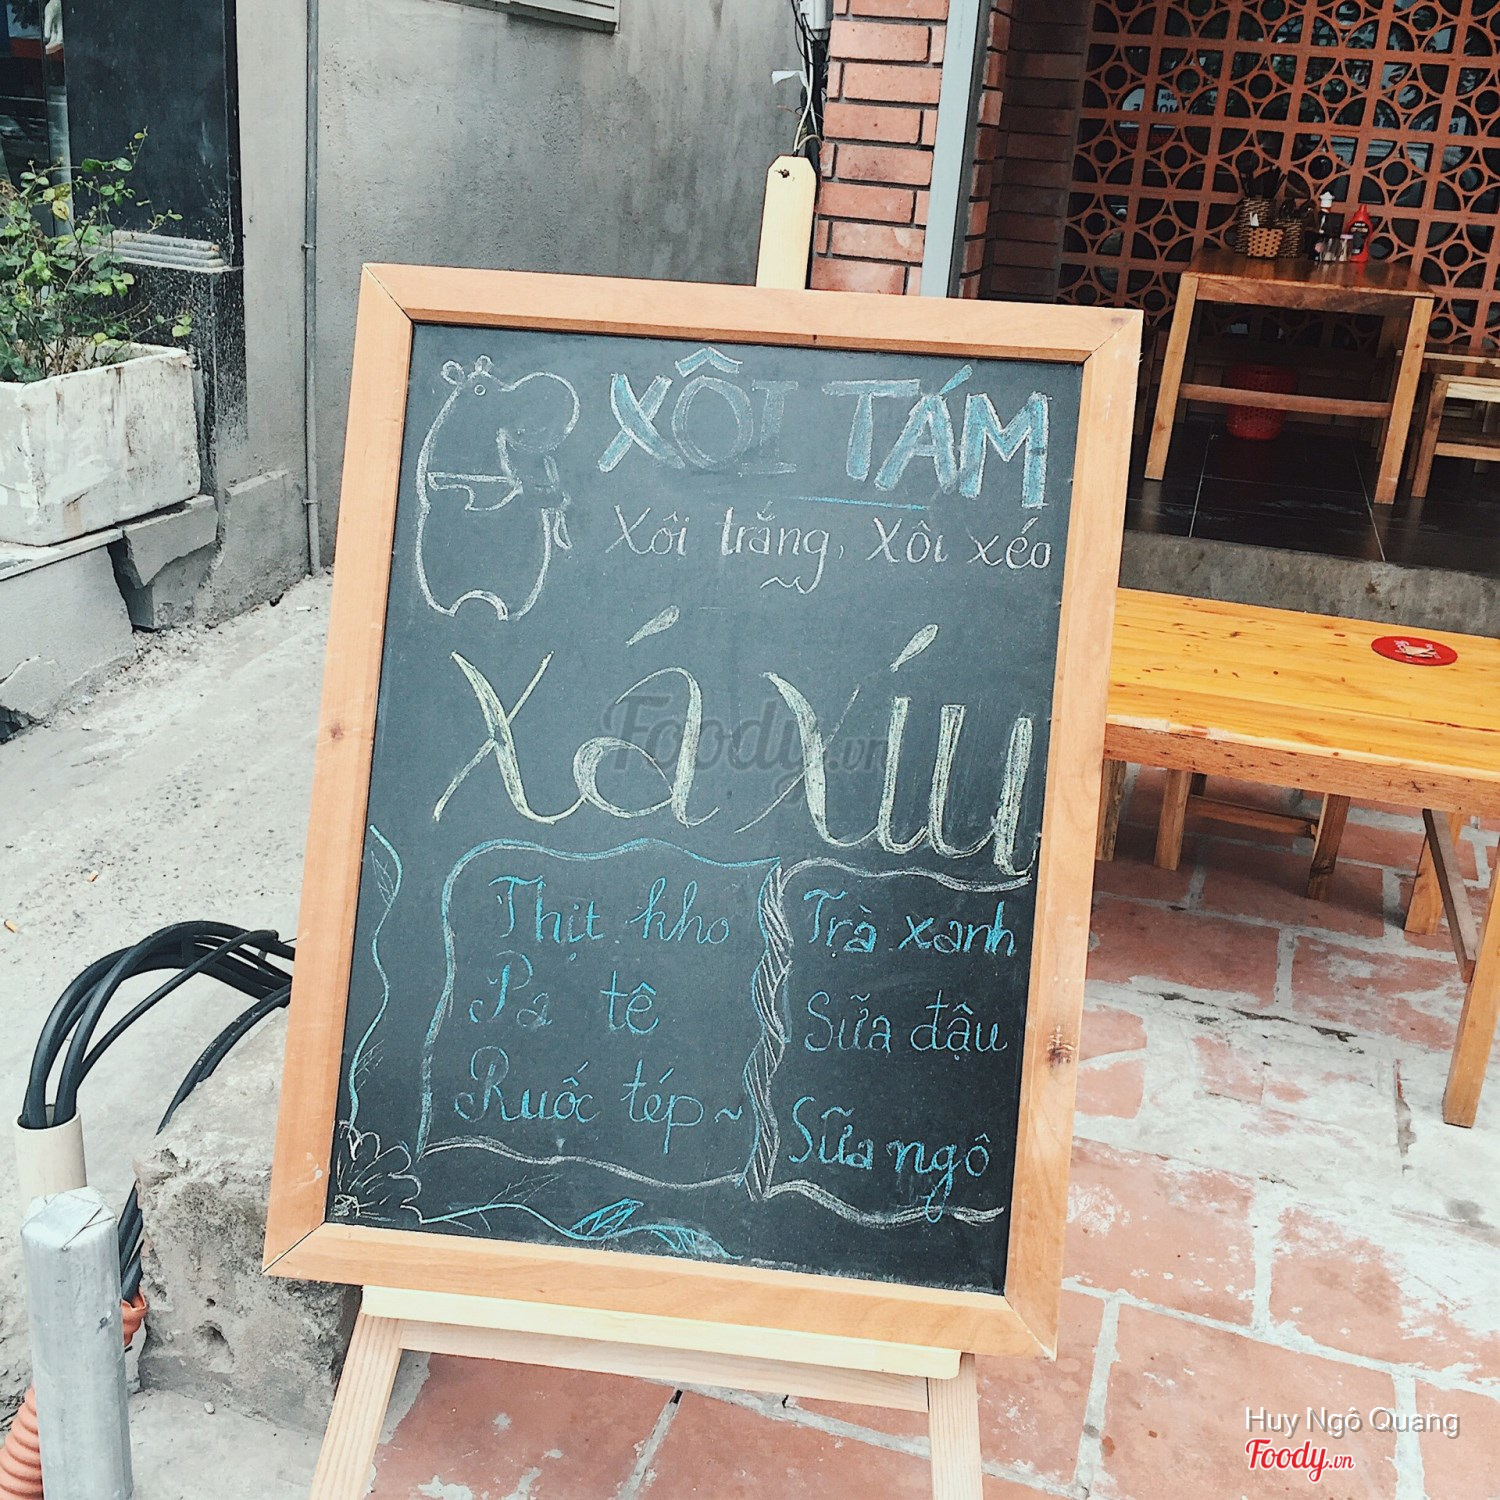 XÔI TÁM
Xôi trắng, Xôi xéo
Xá xíu
Thịt kho
Pa tê
Ruốc tép~
Trà xanh
Sữa đậu
Sữa ngô
Foody.vn
Huy Ngô Quang
Foody.vn